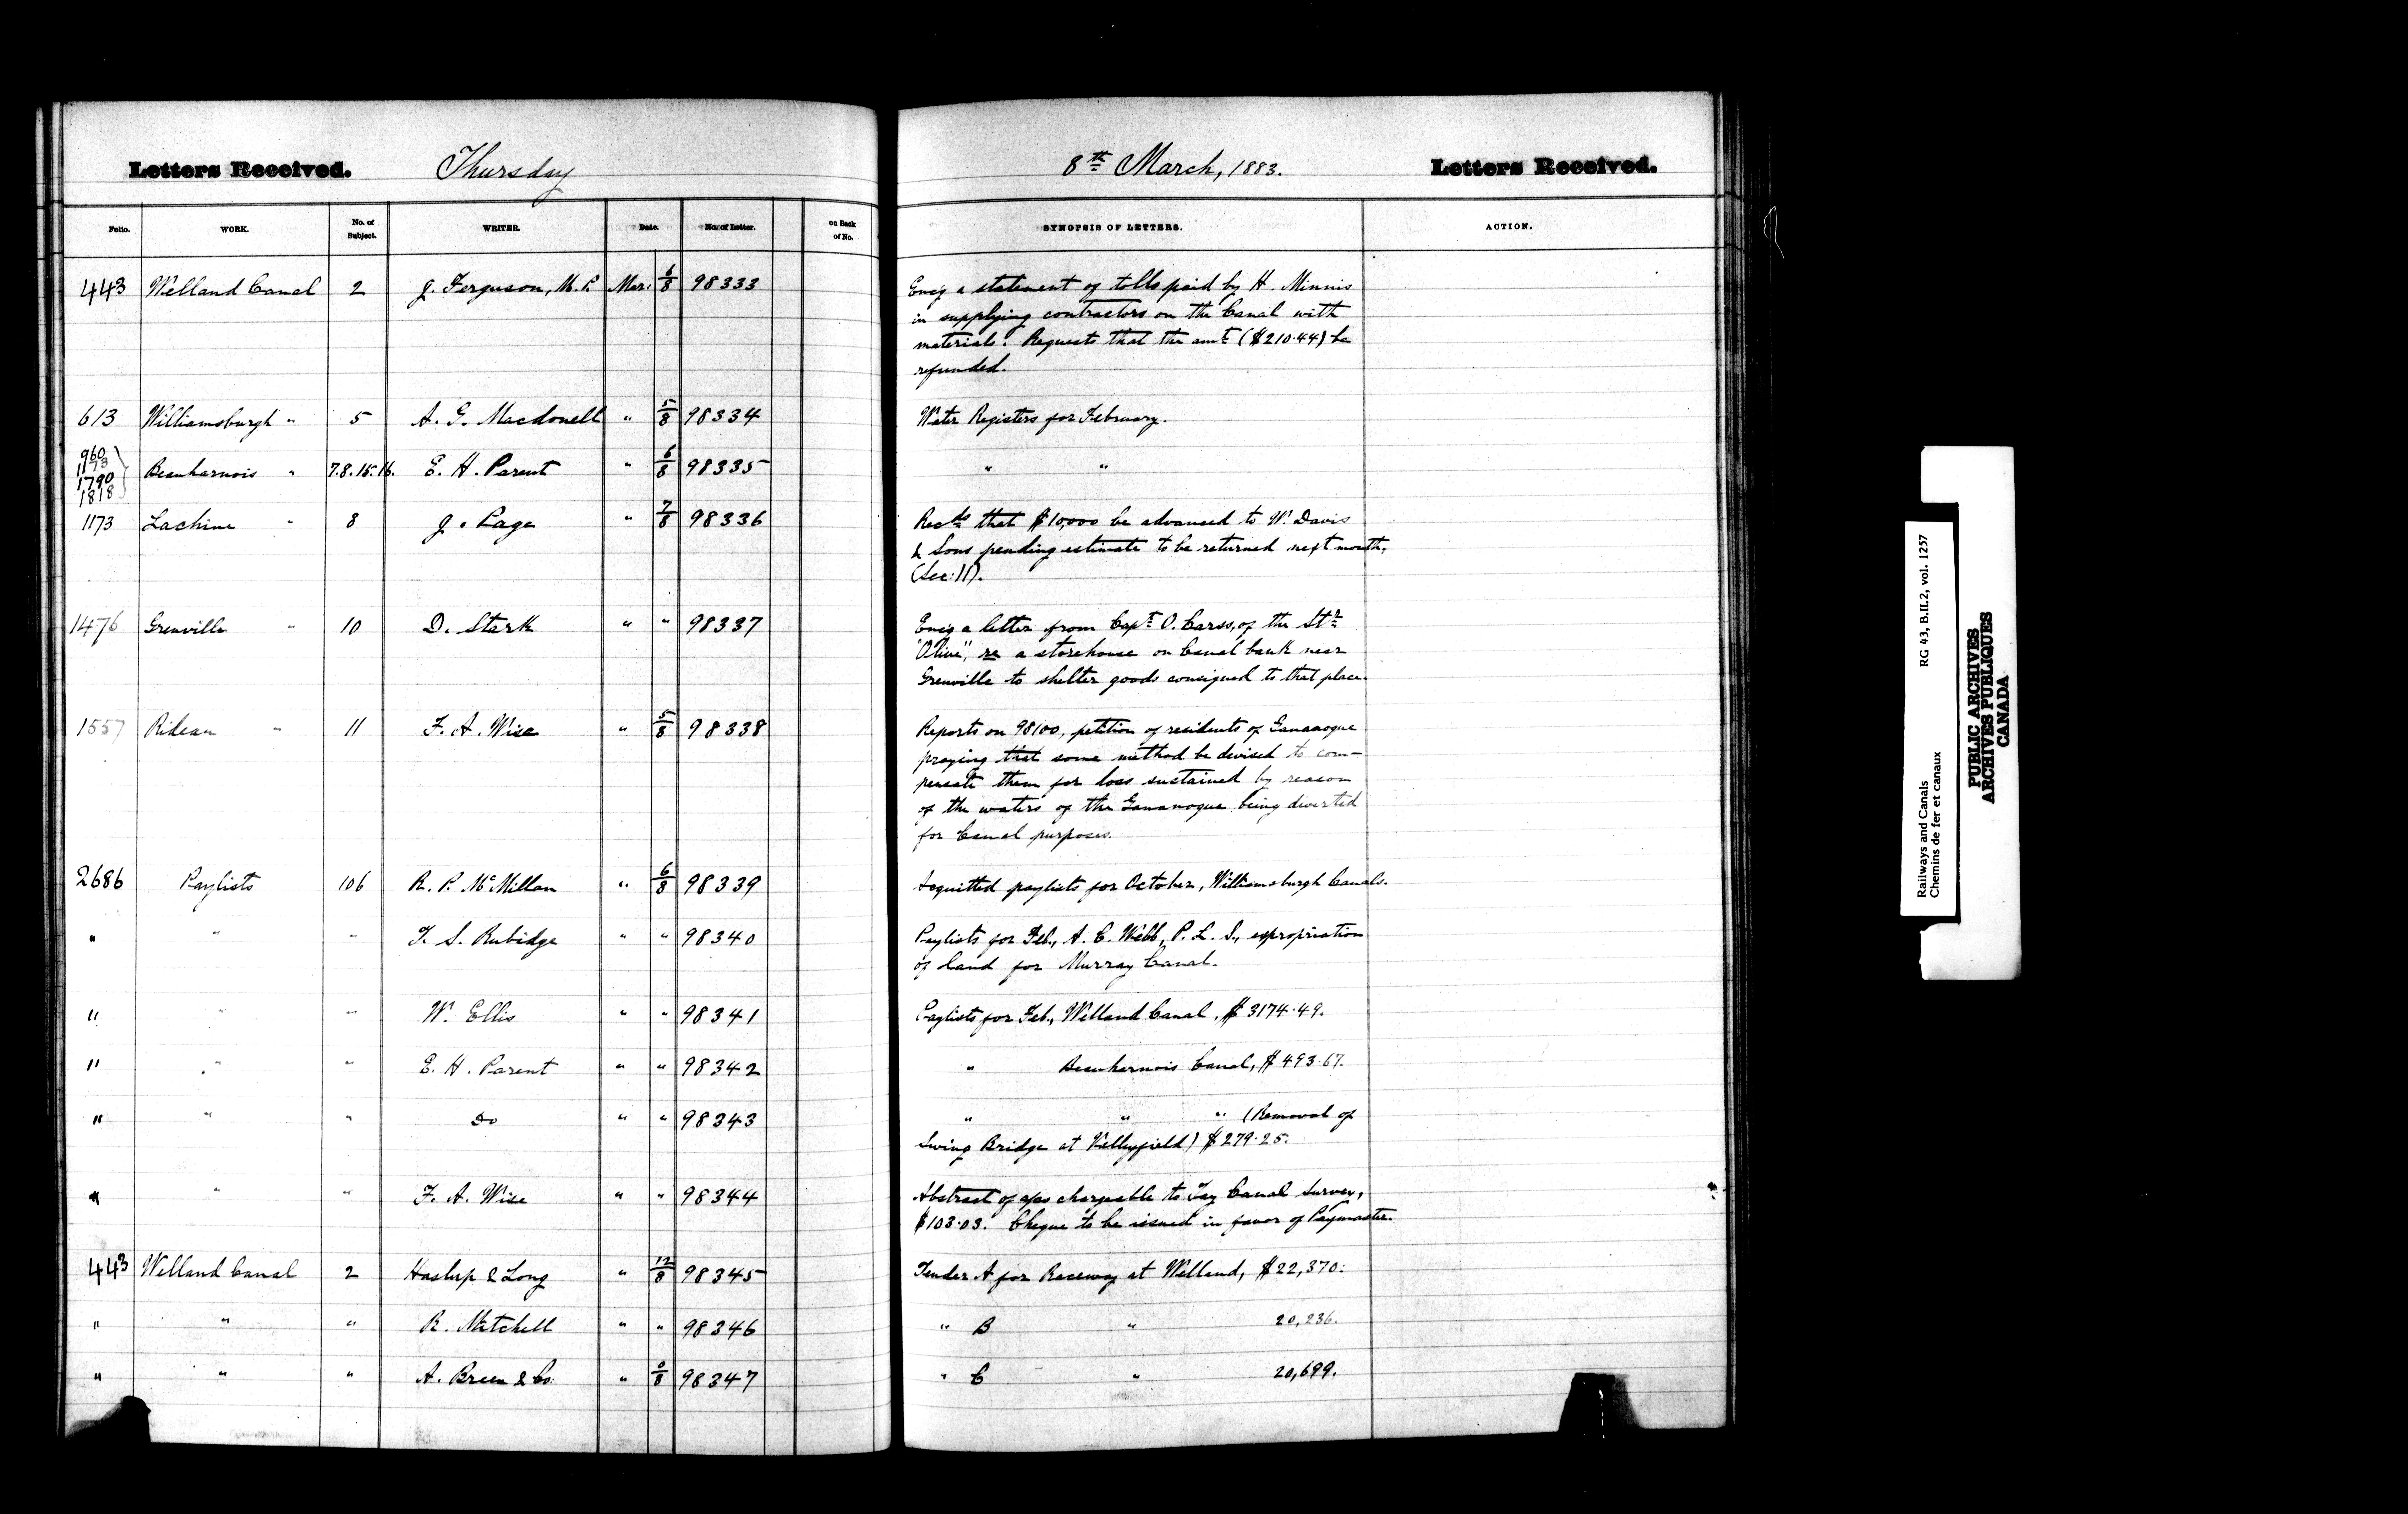 Letters Received. Thursday 8th March, 1883. Letters Received.
Folio. WORK. No. of Subject. WRITER. Date. No. of Letter. on Back of No. SYNOPSIS OF LETTERS. ACTION.
443 Welland Canal 2 J. Ferguson, M.P. Mar: 6/8 98333 Encg a statement of tolls paid by H. Minnis
in supplying contractors on the Canal with
materials. Requests that the amt ($210.44) be
refunded.
613 Williamsburgh " 5 A. G. Macdonell " 5/8 98334 Water Registers for February.
960 1173 1790 1818 } Beauharnois " 7.8.15.16. E. H. Parent " 6/8 98335 " "
1173 Lachine " 8 J. Page " 7/8 98336 Recds that $10,000 be advanced to W. Davis
& Sons pending estimate to be returned next month.
(Sec: 11).
1476 Grenville " 10 D. Stark " " 98337 Encg a letter from Capt O. Carss, of the Str
"Olive", re a storehouse on Canal bank near
Grenville to shelter goods consigned to that place.
1557 Rideau " 11 F. A. Wise " 5/8 98338 Reports on 98100, petition of residents of Gananoque
praying that some method be devised to com-
pensate them for loss sustained by reason
of the waters of the Gananoque being diverted
for Canal purposes.
2686 Paylists 106 R. P. McMillan " 6/8 98339 Acquitted paylists for October, Williamsburgh Canals.
" " " T. S. Rubidge " " 98340 Paylists for Feb., A. C. Webb, P. L. S., expropriation
of land for Murray Canal.
" " " W. Ellis " " 98341 Paylists for Feb., Welland Canal, $3174.49.
" " " E. H. Parent " " 98342 " Beauharnois Canal, $493.67.
" " " Do " " 98343 " " " (Removal of
Swing Bridge at Valleyfield) $279.25.
" " " F. A. Wise " " 98344 Abstract of a/cs chargeable to Tay Canal Survey,
$103.03. Cheque to be issued in favor of Paymaster.
443 Welland Canal 2 Haslup & Long " 12/8 98345 Tender A for Raceway at Welland, $22,370.
" " " R. Mitchell " " 98346 " B " 20,236.
" " " A. Breen & Co. " 98347 " C " 20,699.
Railways and Canals RG 43, B.II.2, vol. 1257
Chemins de fer et canaux
PUBLIC ARCHIVES
ARCHIVES PUBLIQUES
CANADA